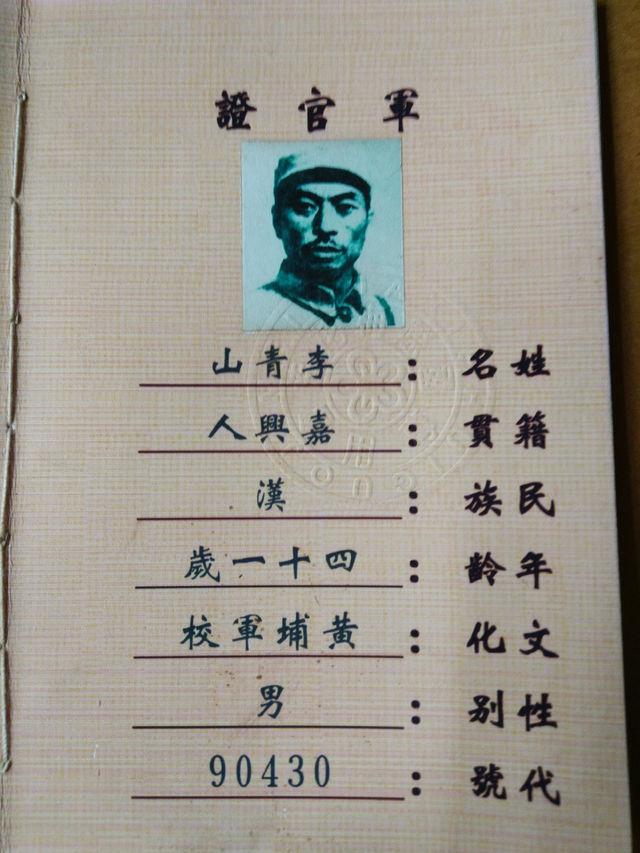 軍官證
姓名：李青山
籍貫：嘉興人
民族：漢
年齡：四十一歲
文化：黃埔軍校
性别：男
代號：90430